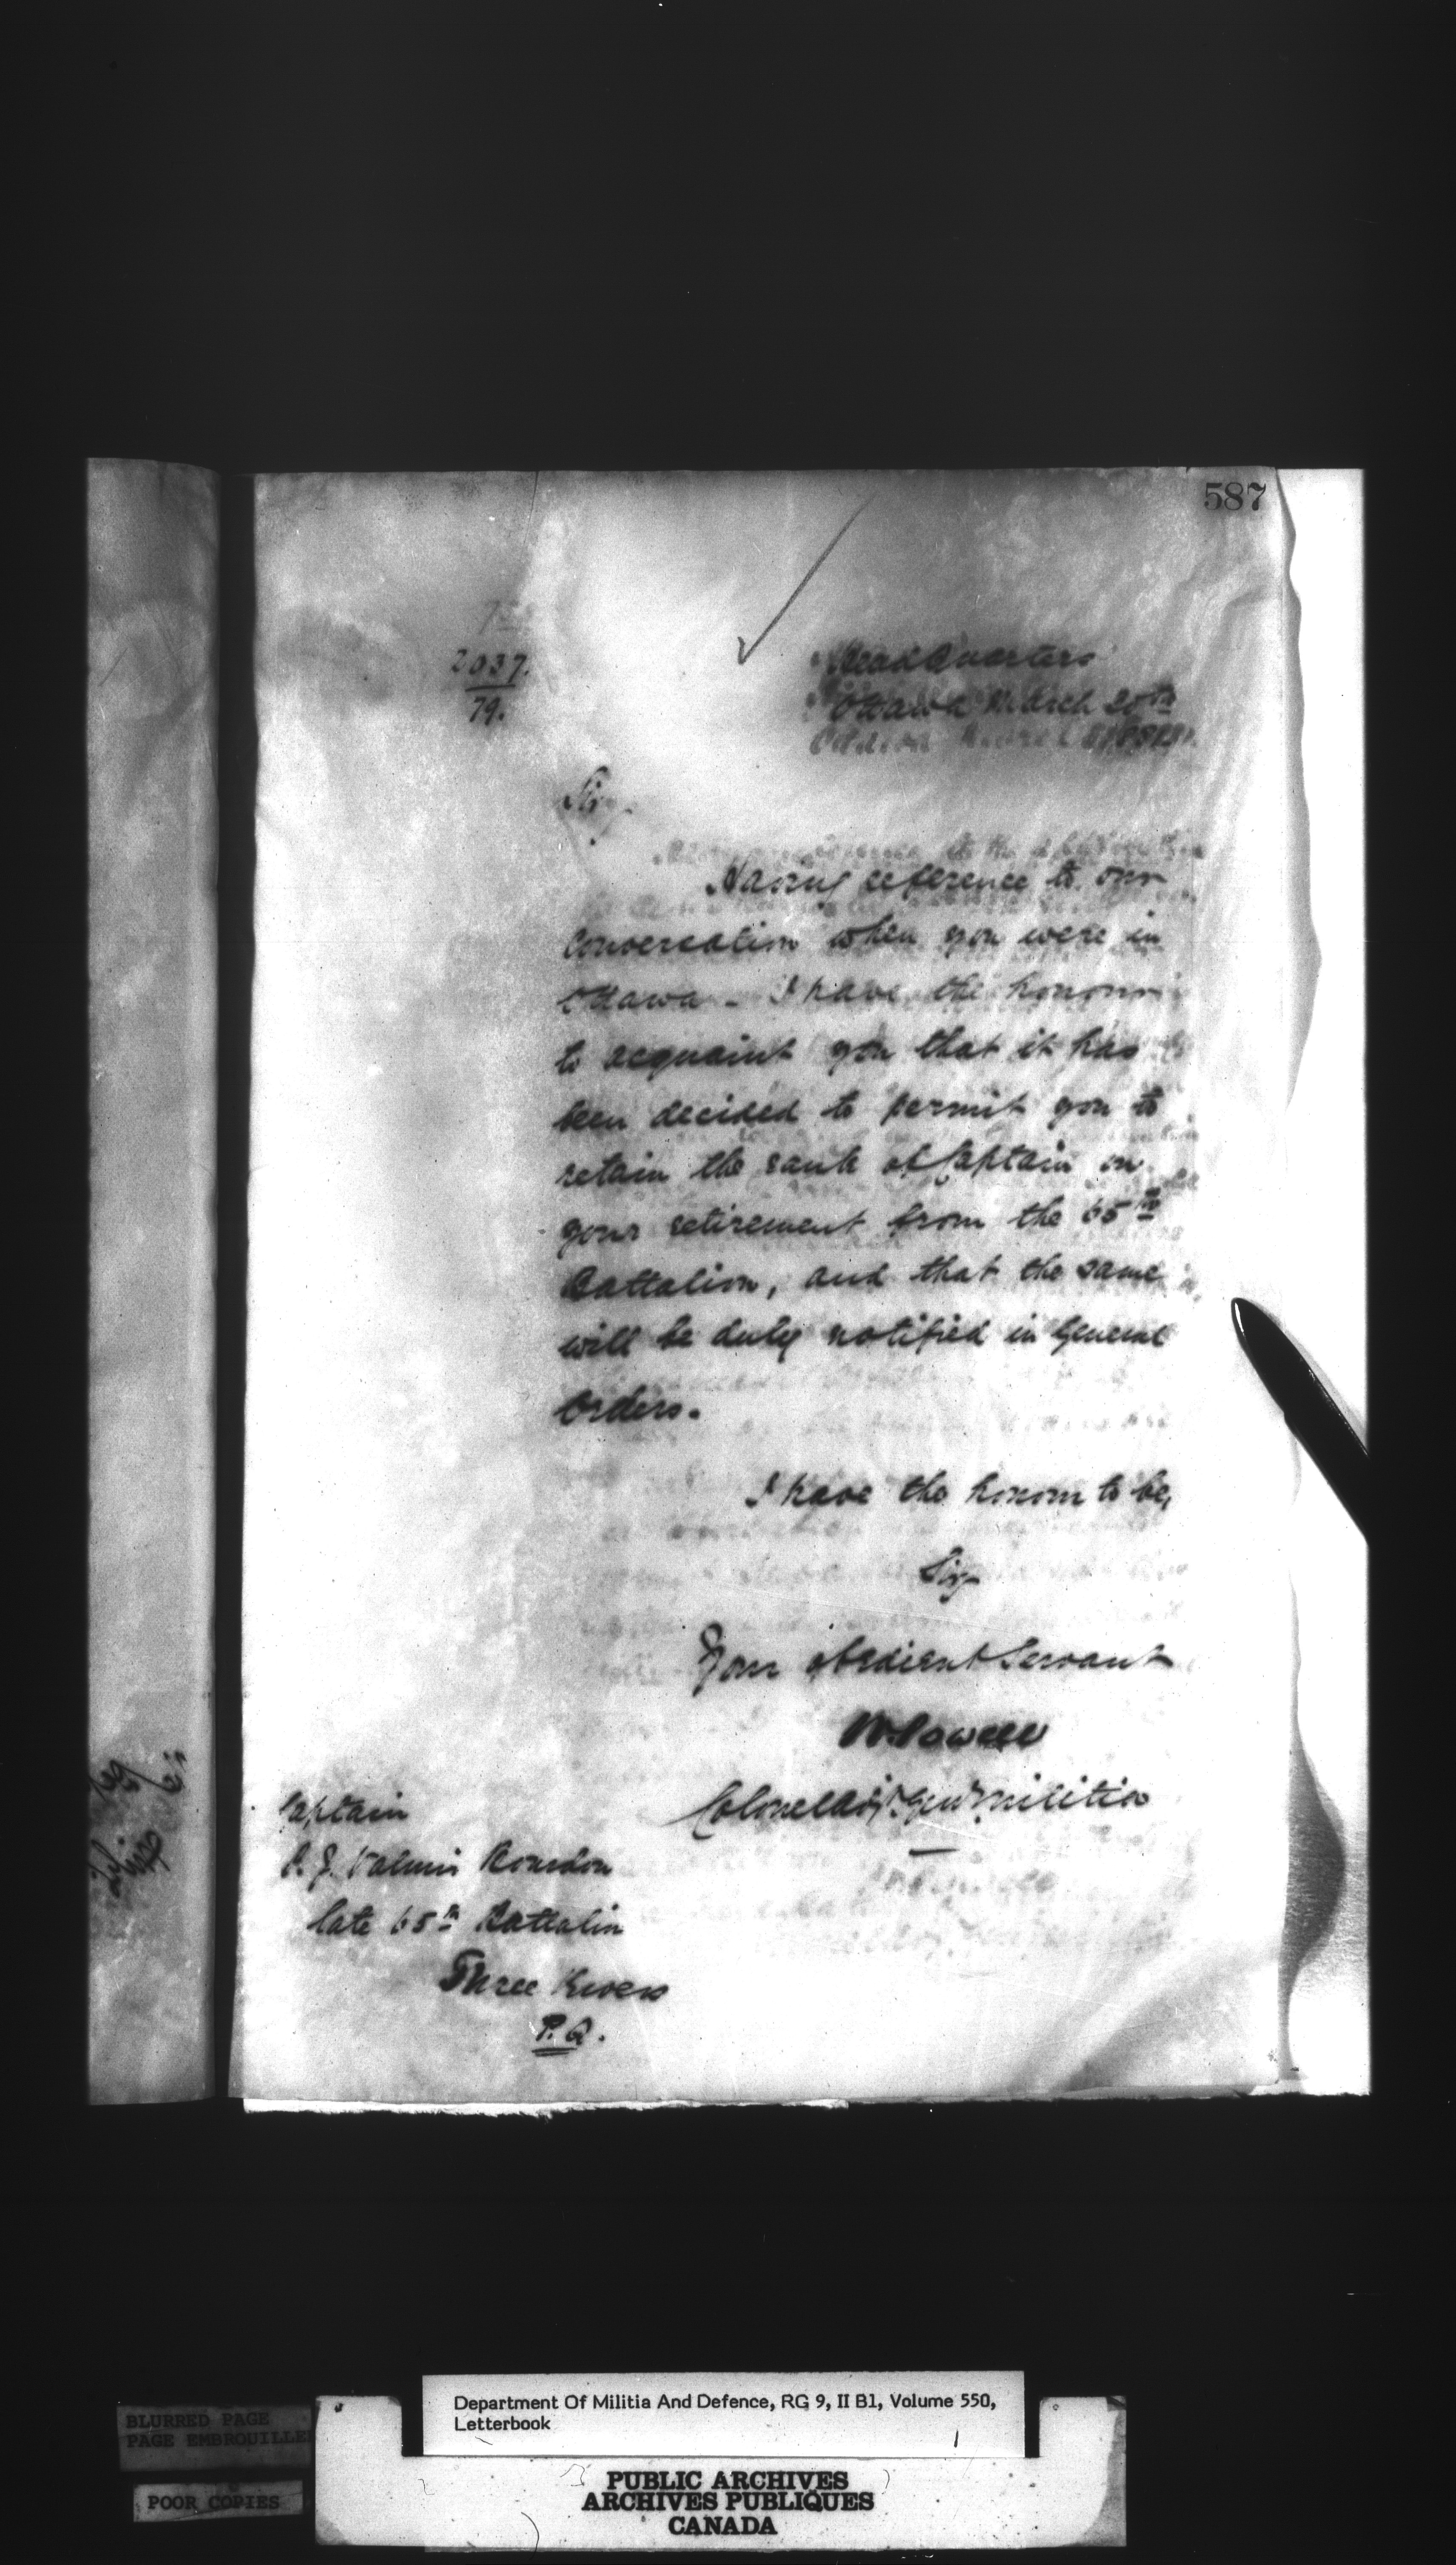 587
2037.
79.
Head Quarters
Ottawa March 20th
Sir,
Having reference to our
Conversation when you were in
Ottawa - I have the honour
to acquaint you that it has
been decided to permit you to
retain the rank of Captain on
your retirement from the 65th
Battalion, and that the same
will be duly notified in General
Orders.
I have the honour to be,
Sir,
Your obedient Servant
W. Powell
Colonel Adjt. Genl. Militia
Captain
late 65th Battalion
Three Rivers
P.Q.
Department Of Militia And Defence, RG 9, II B1, Volume 550,
Letterbook
BLURRED PAGE
PAGE EMBROUILLE
POOR COPIES
PUBLIC ARCHIVES
ARCHIVES PUBLIQUES
CANADA